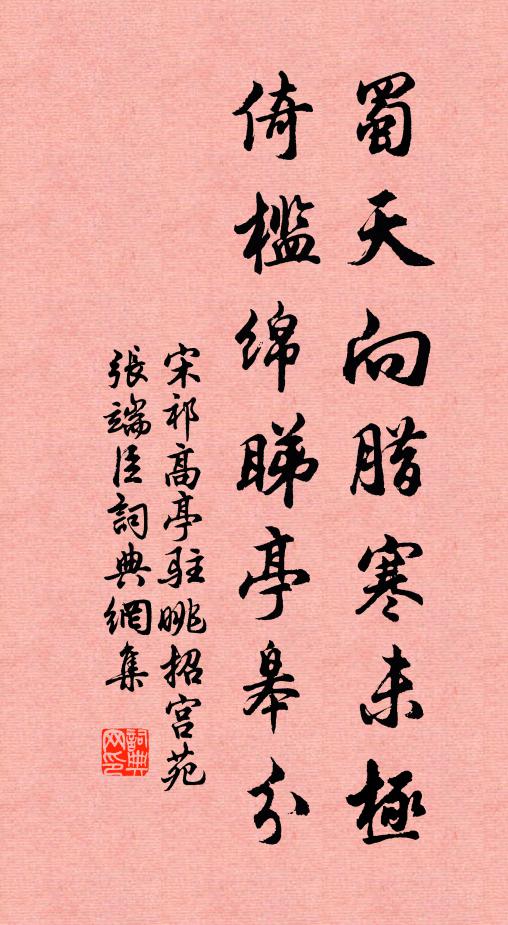 蜀天向腊寒未極
倚檻绵睇亭皋分
宋祁高亭駐眺招宫苑
張端臣詞典網集
詞典
网印